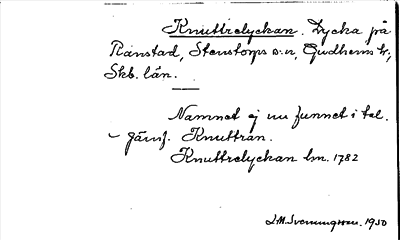 Knuttrelyckan. Lycka på
Ranstad, Stenstorps sn, Gudhems hd,
Skb. län.
Namnet ej nu funnet i tal.
– Jämf. Knuttran.
Knuttrelyckan lm. 1782
J.M. Svenningsson. 1930